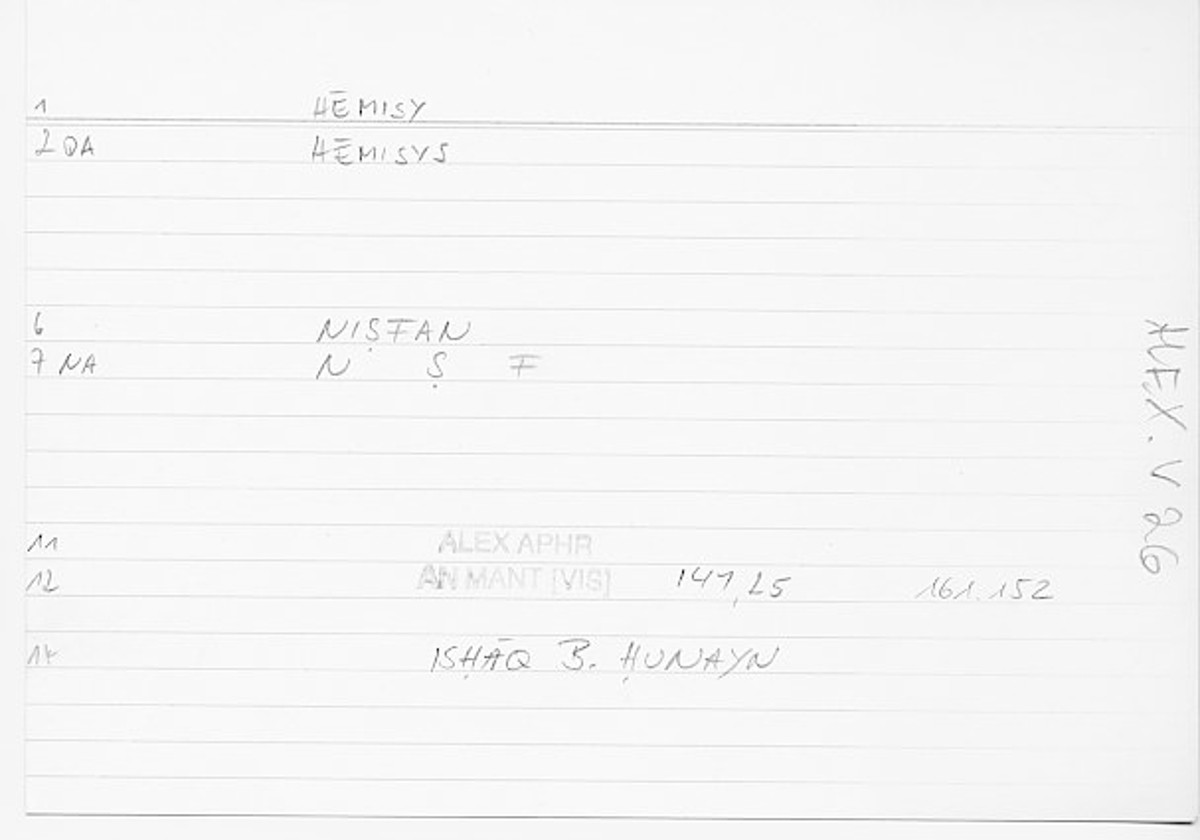 1 HĒMISY
2 QA HĒMISYS
6 NIṢFAN
7 NA N Ṣ F
11 ALEX APHR
12 AN MANT [VIS] 141,25 161.152
14 ISḤĀQ B. ḤUNAYN
ALEX. V 26